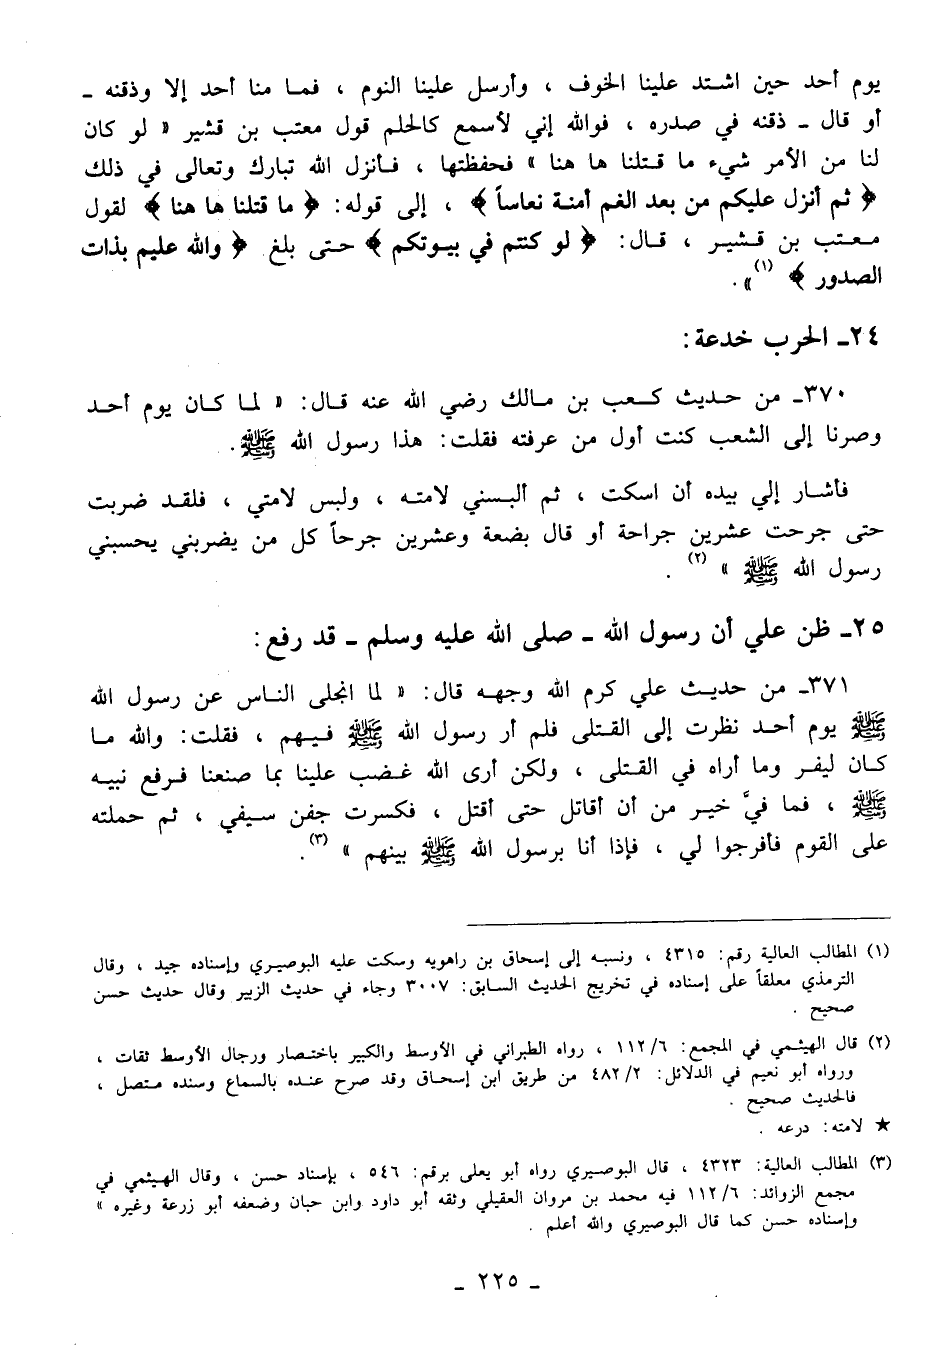 يوم أحد حين اشتد علينا الخوف ، وأرسل علينا النوم ، فما منا أحد إلا وذقنه ـ
أو قال ـ ذقنه في صدره ، فوالله إني لأسمع كالحلم قول معتب بن قشير « لو كان
لنا من الأمر شيء ما قتلنا ها هنا » فحفظتها ، فأنزل الله تبارك وتعالى في ذلك
﴿ ثم أنزل عليكم من بعد الغم أمنة نعاساً ﴾ ، إلى قوله: ﴿ ما قتلنا ها هنا ﴾ لقول
معتب بن قشير ، قال: ﴿ لو كنتم في بيوتكم ﴾ حتى بلغ ﴿ والله عليم بذات
الصدور ﴾ (١)» .
٢٤ـ الحرب خدعة:
٣٧٠ـ من حديث كعب بن مالك رضي الله عنه قال: « لما كان يوم أحد
وصرنا إلى الشعب كنت أول من عرفته فقلت: هذا رسول الله ﷺ .
فأشار إلي بيده أن اسكت ، ثم ألبسني لامته ، ولبس لامتي ، فلقد ضربت
حتى جرحت عشرين جراحة أو قال بضعة وعشرين جرحاً كل من يضربني يحسبني
رسول الله ﷺ » (٢) .
٢٥ـ ظن علي أن رسول الله ـ صلى الله عليه وسلم ـ قد رفع:
٣٧١ـ من حديث علي كرم الله وجهه قال: « لما انجلى الناس عن رسول الله
ﷺ يوم أحد نظرت إلى القتلى فلم أر رسول الله ﷺ فيهم ، فقلت: والله ما
كان ليفر وما أراه في القتلى ، ولكن أرى الله غضب علينا بما صنعنا فرفع نبيه
ﷺ ، فما فيَّ خير من أن أقاتل حتى أقتل ، فكسرت جفن سيفي ، ثم حملته
على القوم فأفرجوا لي ، فإذا أنا برسول الله ﷺ بينهم » (٣).
(١) المطالب العالية رقم: ٤٣١٥ ، ونسبه إلى إسحاق بن راهويه وسكت عليه البوصيري وإسناده جيد ، وقال
الترمذي معلقاً على إسناده في تخريج الحديث السابق: ٣٠٠٧ وجاء في حديث الزبير وقال حديث حسن
صحيح .
(٢) قال الهيثمي في المجمع: ١١٢/٦ ، رواه الطبراني في الأوسط والكبير باختصار ورجال الأوسط ثقات ،
ورواه أبو نعيم في الدلائل: ٤٨٢/٢ من طريق ابن إسحاق وقد صرح عنده بالسماع وسنده متصل ،
فالحديث صحيح .
★ لامته: درعه .
(٣) المطالب العالية: ٤٣٢٣ ، قال البوصيري رواه أبو يعلى برقم: ٥٤٦ ، بإسناد حسن ، وقال الهيثمي في
مجمع الزوائد: ١١٢/٦ فيه محمد بن مروان العقيلي وثقه أبو داود وابن حبان وضعفه أبو زرعة وغيره »
وإسناده حسن كما قال البوصيري والله أعلم .
ـ ٢٢٥ ـ